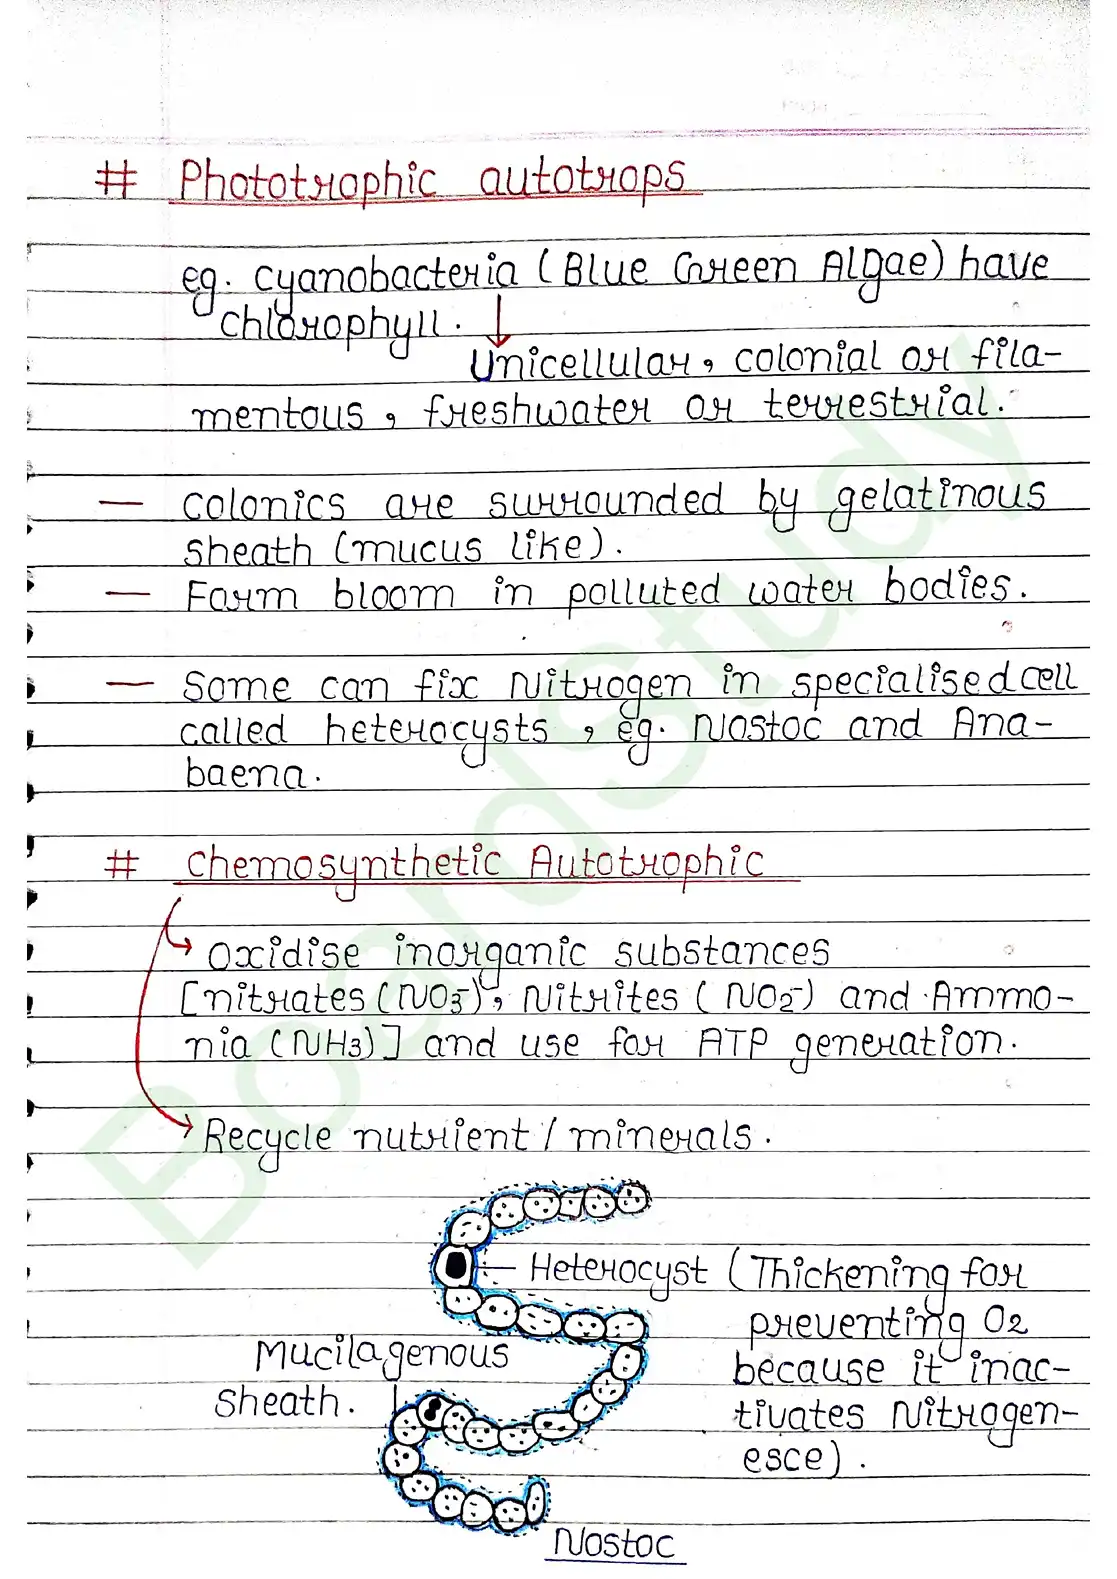 # Phototrophic autotrops
eg. Cyanobacteria (Blue Green Algae) have
chlorophyll.
Unicellular, colonial or fila-
mentous, freshwater or terrestrial.
— Colonics are surrounded by gelatinous
sheath (mucus like).
— Form bloom in polluted water bodies.
— Some can fix Nitrogen in specialised cell
called heterocysts, eg. Nostoc and Ana-
baena.
# Chemosynthetic Autotrophic
Oxidise inorganic substances
[nitrates (NO3⁻), Nitrites (NO2⁻) and Ammo-
nia (NH3)] and use for ATP generation.
Recycle nutrient / minerals.
Heterocyst (Thickening for
preventing O2
because it inac-
tivates Nitrogen-
esce).
Mucilagenous
sheath.
Nostoc
BoardStudy